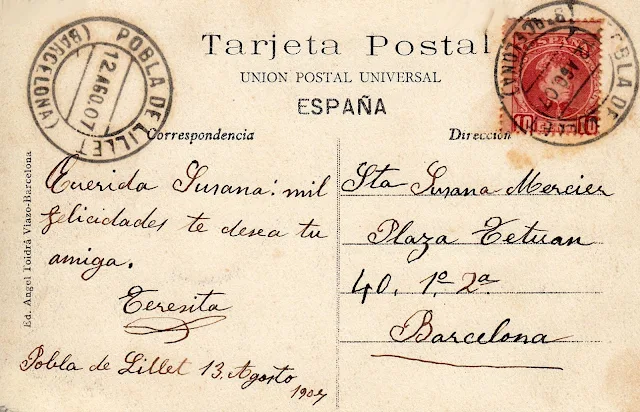 Tarjeta Postal
UNION POSTAL UNIVERSAL
ESPAÑA
POBLA DE LILLET
(BARCELONA)
12 AGO.07
ESPAÑA
10 10
POBLA DE
(BARCELONA)
AGO.07
Correspondencia
Dirección
Querida Susana: mil
felicidades te desea tu
amiga.
Teresita
Pobla de Lillet 13. Agosto
1907
Sta Susana Mercier
Plaza Tetuan
40. 1º 2ª
Barcelona
Ed. Angel Toldrá Viazo-Barcelona